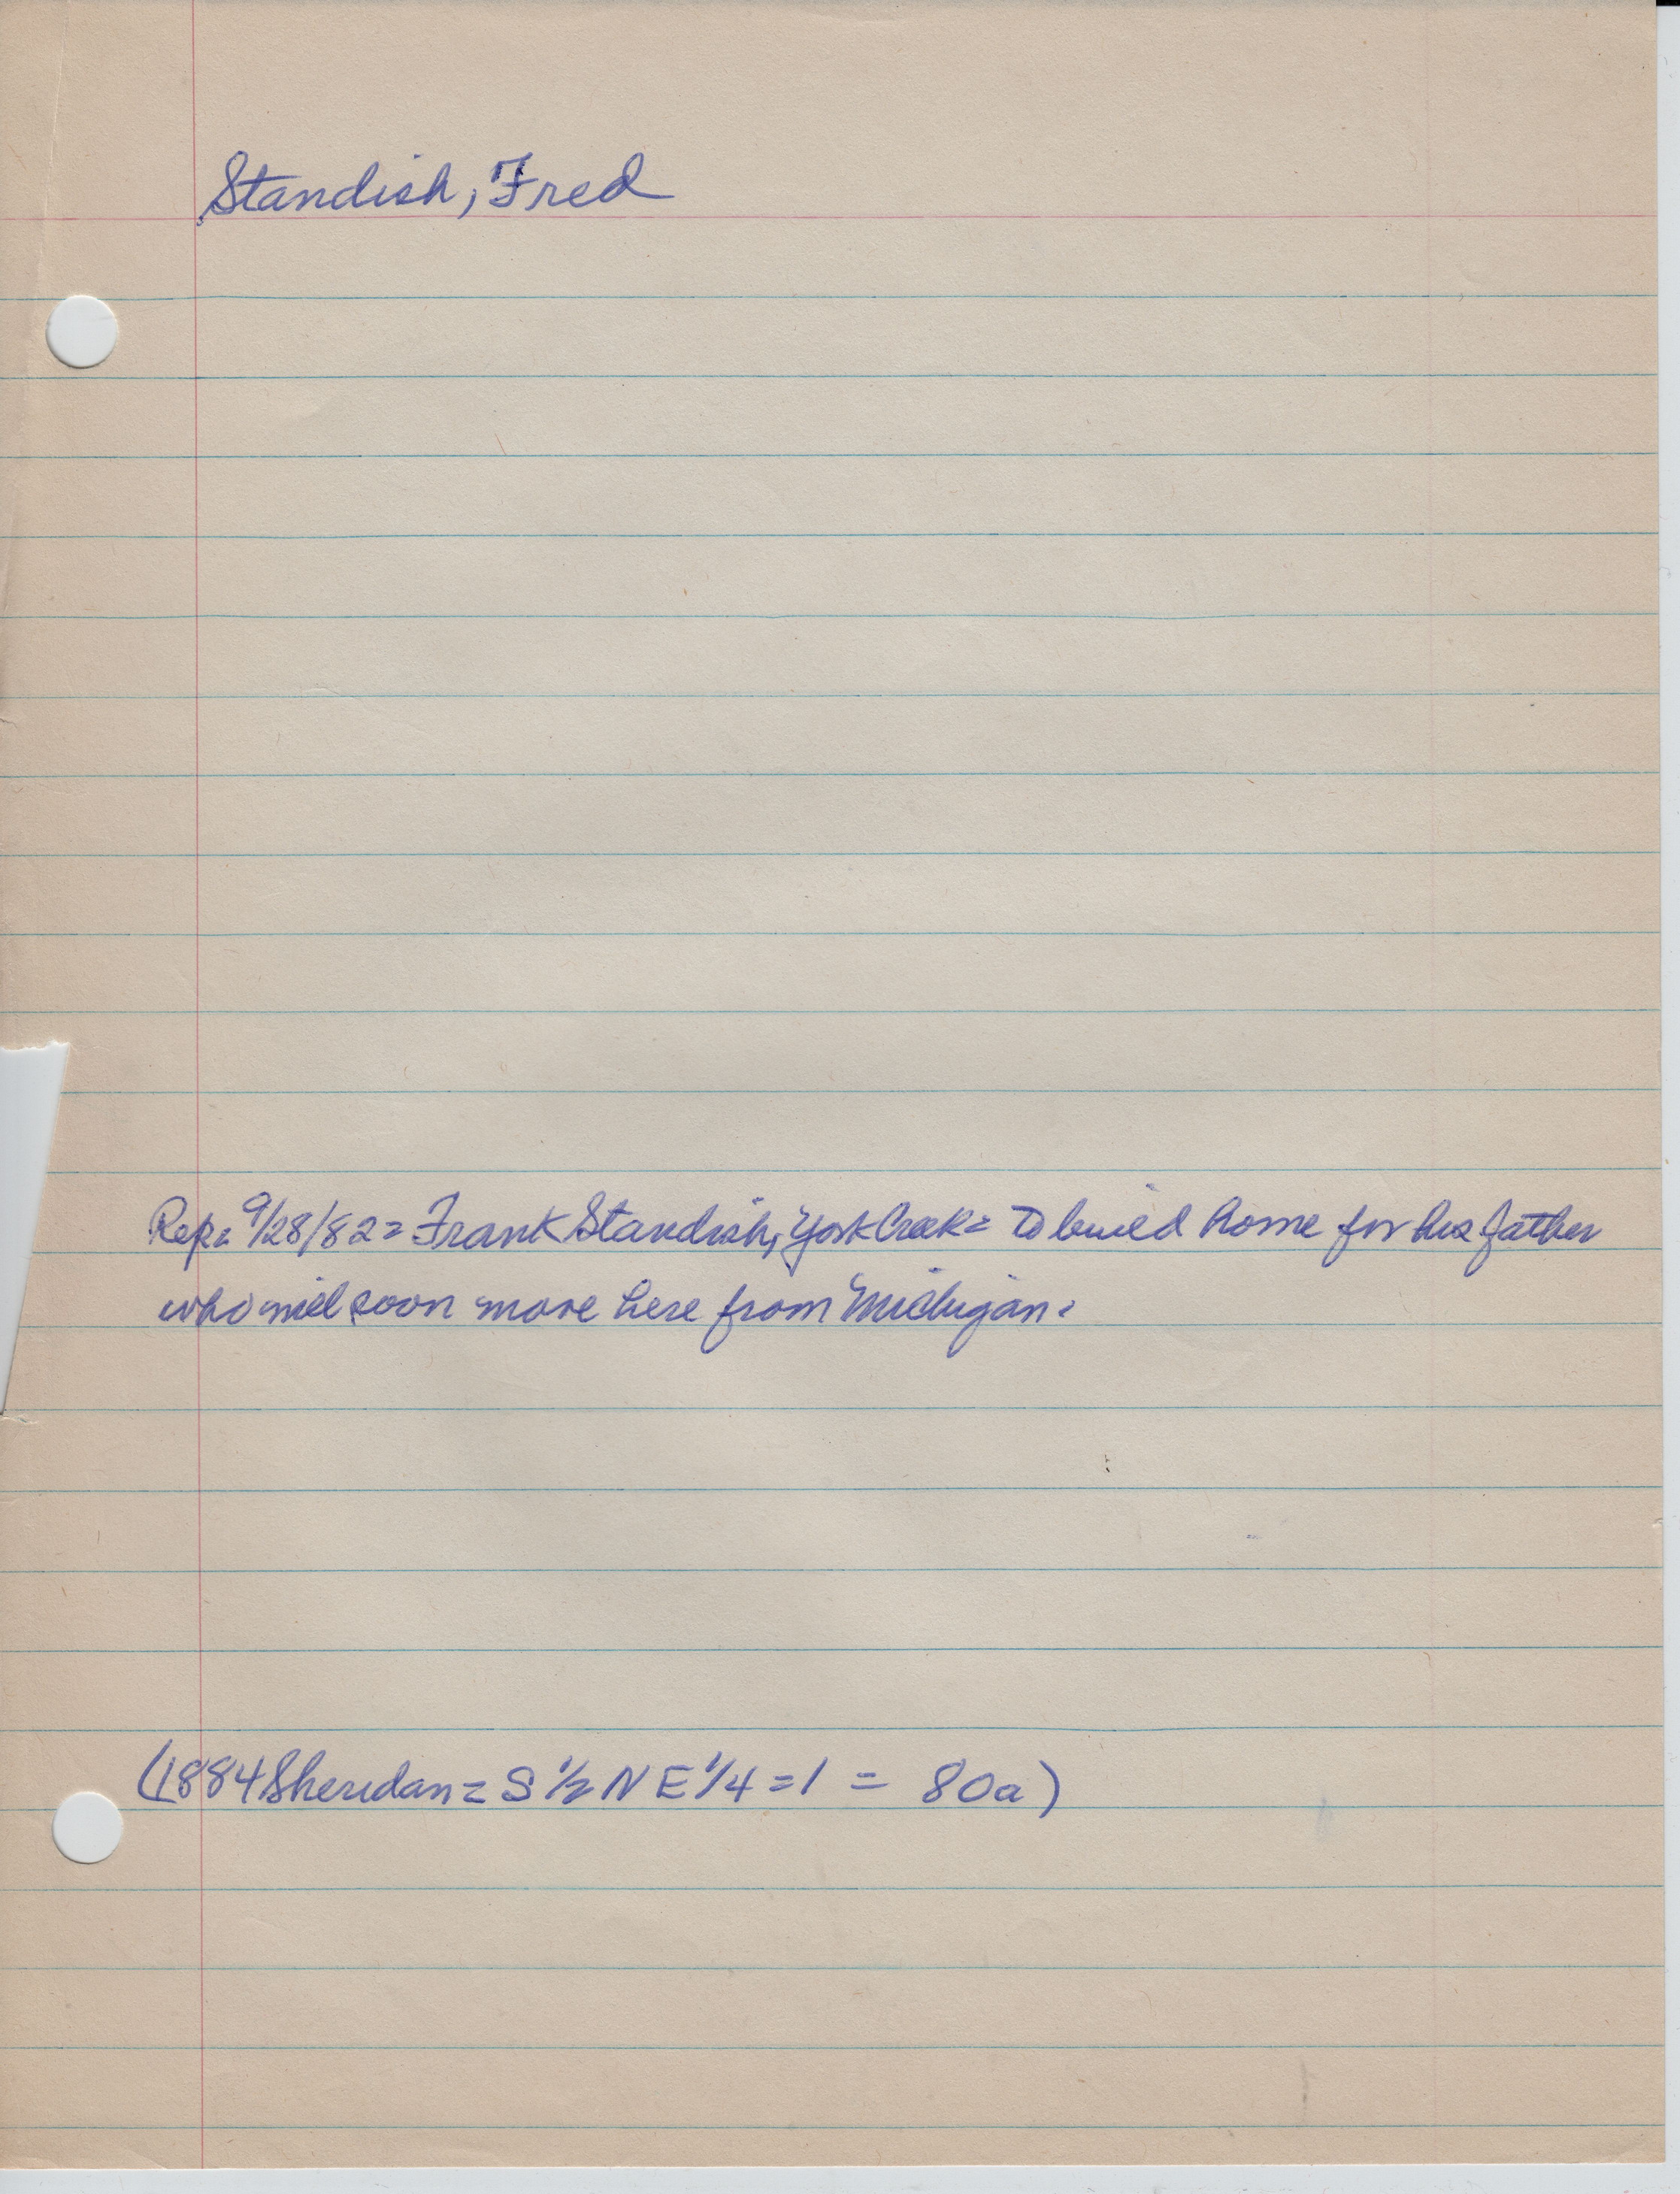 Standish, Fred
Rep= 9/28/82= Frank Standish, York Creek= To build home for his father
who will soon move here from Michigan.
(1884 Sheridan= S 1/2 N E 1/4 = 1 = 80a)